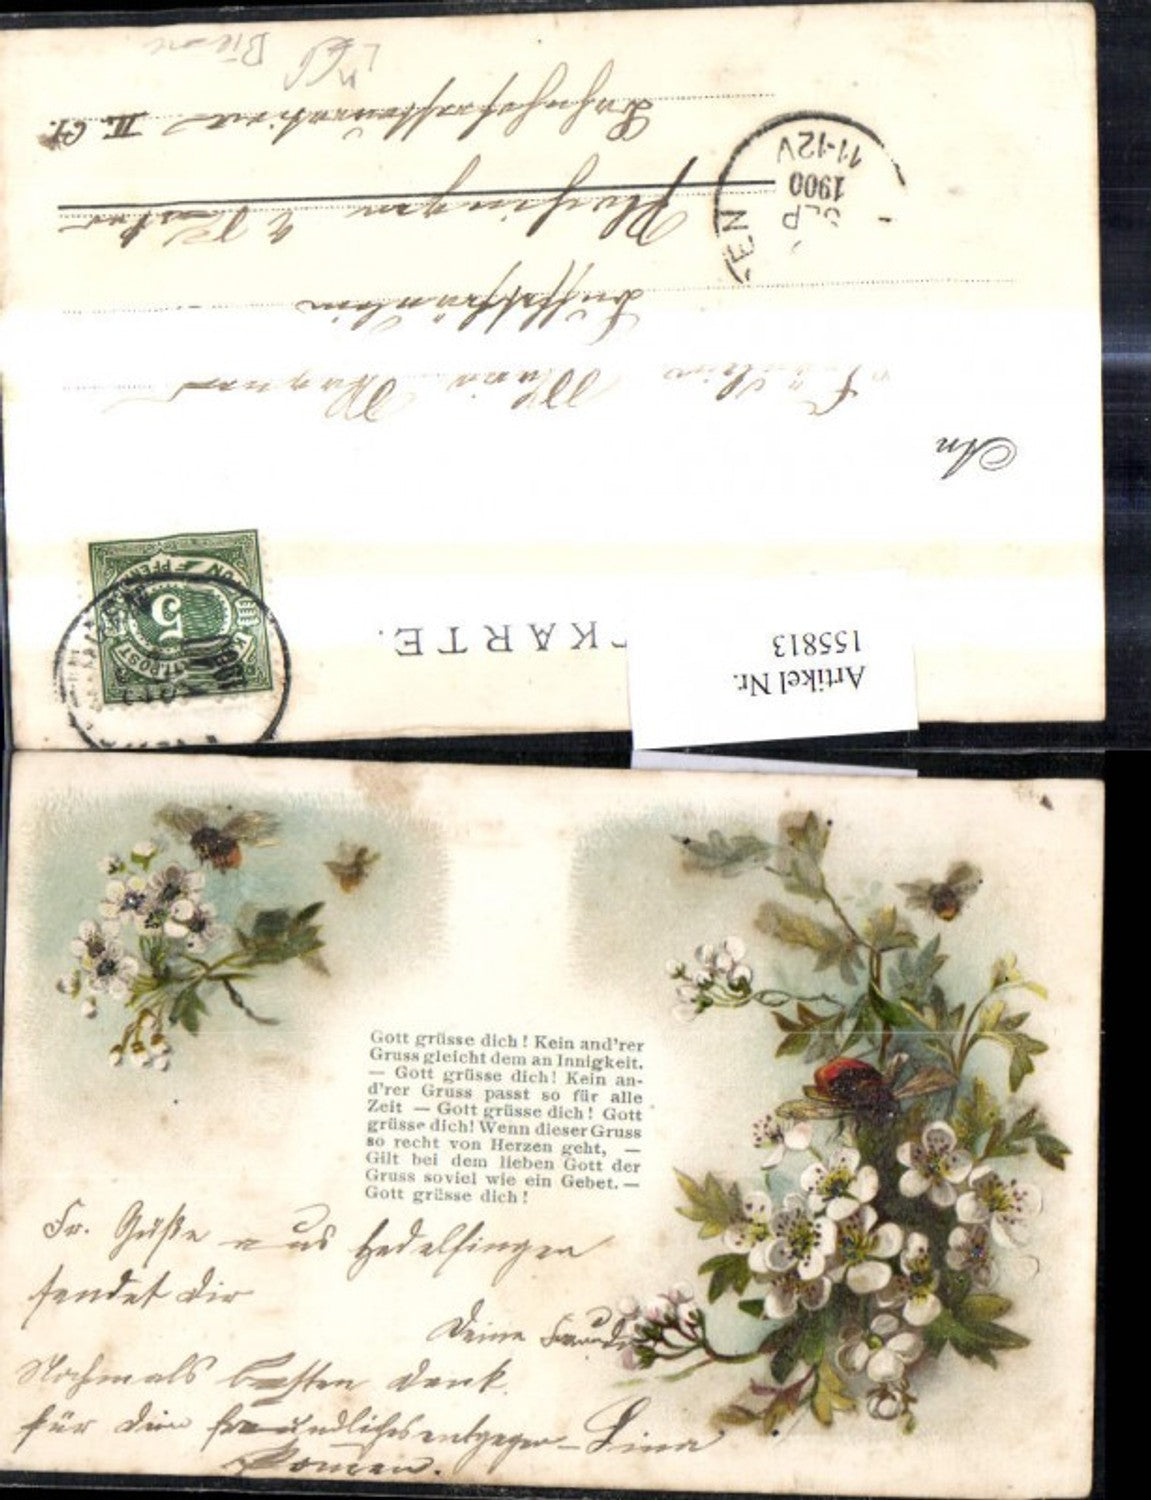 Artikel Nr.
155813
TKARTE.
5
An
Fräulein Marie Wagner
Büffetfräulein
Plochingen a Neckar
Bahnhofrestauration II. Cl.
TEN
SEP
1900
11-12V
Gott grüsse dich! Kein and'rer
Gruss gleicht dem an Innigkeit.
— Gott grüsse dich! Kein an-
d'rer Gruss passt so für alle
Zeit — Gott grüsse dich! Gott
grüsse dich! Wenn dieser Gruss
so recht von Herzen geht, —
Gilt bei dem lieben Gott der
Gruss soviel wie ein Gebet. —
Gott grüsse dich!
Fr. Grüße aus Hedelfingen
sendet dir
Deine Freundin
Nochmals besten Dank
für dein freundliches entgegen-
komen.
Lina